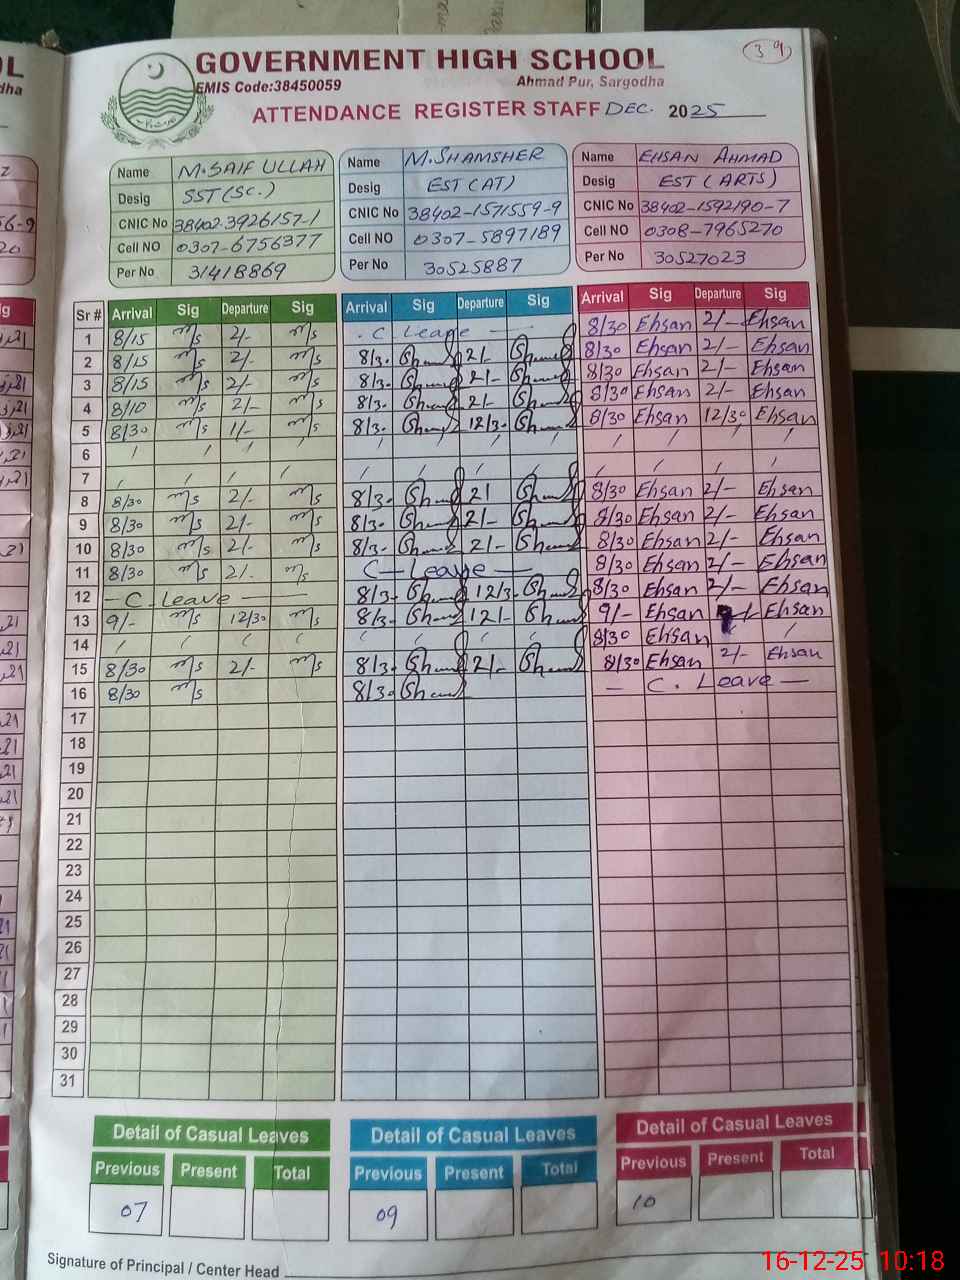 GOVERNMENT HIGH SCHOOL
EMIS Code:38450059 Ahmad Pur, Sargodha
ATTENDANCE REGISTER STAFF DEC. 2025
39
Name M. SAIF ULLAH
Desig SST (SC.)
CNIC No 38402-3926157-1
Cell NO 0307-6756377
Per No 31418869
Name M. SHAMSHER
Desig EST (AT)
CNIC No 38402-1571559-9
Cell NO 0307-5897189
Per No 30525887
Name EHSAN AHMAD
Desig EST (ARTS)
CNIC No 38402-1592190-7
Cell NO 0308-7965270
Per No 30527023
Sr # Arrival Sig Departure Sig Arrival Sig Departure Sig Arrival Sig Departure Sig
1 8/15 m/s 2/- m/s C Leave 8/30 Ehsan 2/- Ehsan
2 8/15 m/s 2/- m/s 8/3. 2/- 8/30 Ehsan 2/- Ehsan
3 8/15 m/s 2/- m/s 8/3. 2/- 8/30 Ehsan 2/- Ehsan
4 8/10 m/s 2/- m/s 8/3. 2/- 8/30 Ehsan 2/- Ehsan
5 8/30 m/s 1/- m/s 8/3. 12/3. 8/30 Ehsan 12/30 Ehsan
6 / / / / / / / /
7 / / / / / / / / / / / /
8 8/30 m/s 2/- m/s 8/3. 2/ 8/30 Ehsan 2/- Ehsan
9 8/30 m/s 2/- m/s 8/3. 2/- 8/30 Ehsan 2/- Ehsan
10 8/30 m/s 2/- m/s 8/3. 2/- 8/30 Ehsan 2/- Ehsan
11 8/30 m/s 2/- m/s C- Leave - 8/30 Ehsan 2/- Ehsan
12 - C. Leave - 8/3. 12/3. 8/30 Ehsan 2/- Ehsan
13 9/- m/s 12/30 m/s 8/3. 12/- 9/- Ehsan Ehsan
14 / / / / / / / / 8/30 Ehsan /
15 8/30 m/s 2/- m/s 8/3. 2/- 8/30 Ehsan 2/- Ehsan
16 8/30 m/s 8/3. - C. Leave -
17
18
19
20
21
22
23
24
25
26
27
28
29
30
31
Detail of Casual Leaves Detail of Casual Leaves Detail of Casual Leaves
Previous Present Total Previous Present Total Previous Present Total
07 09 10
Signature of Principal / Center Head
16-12-25 10:18